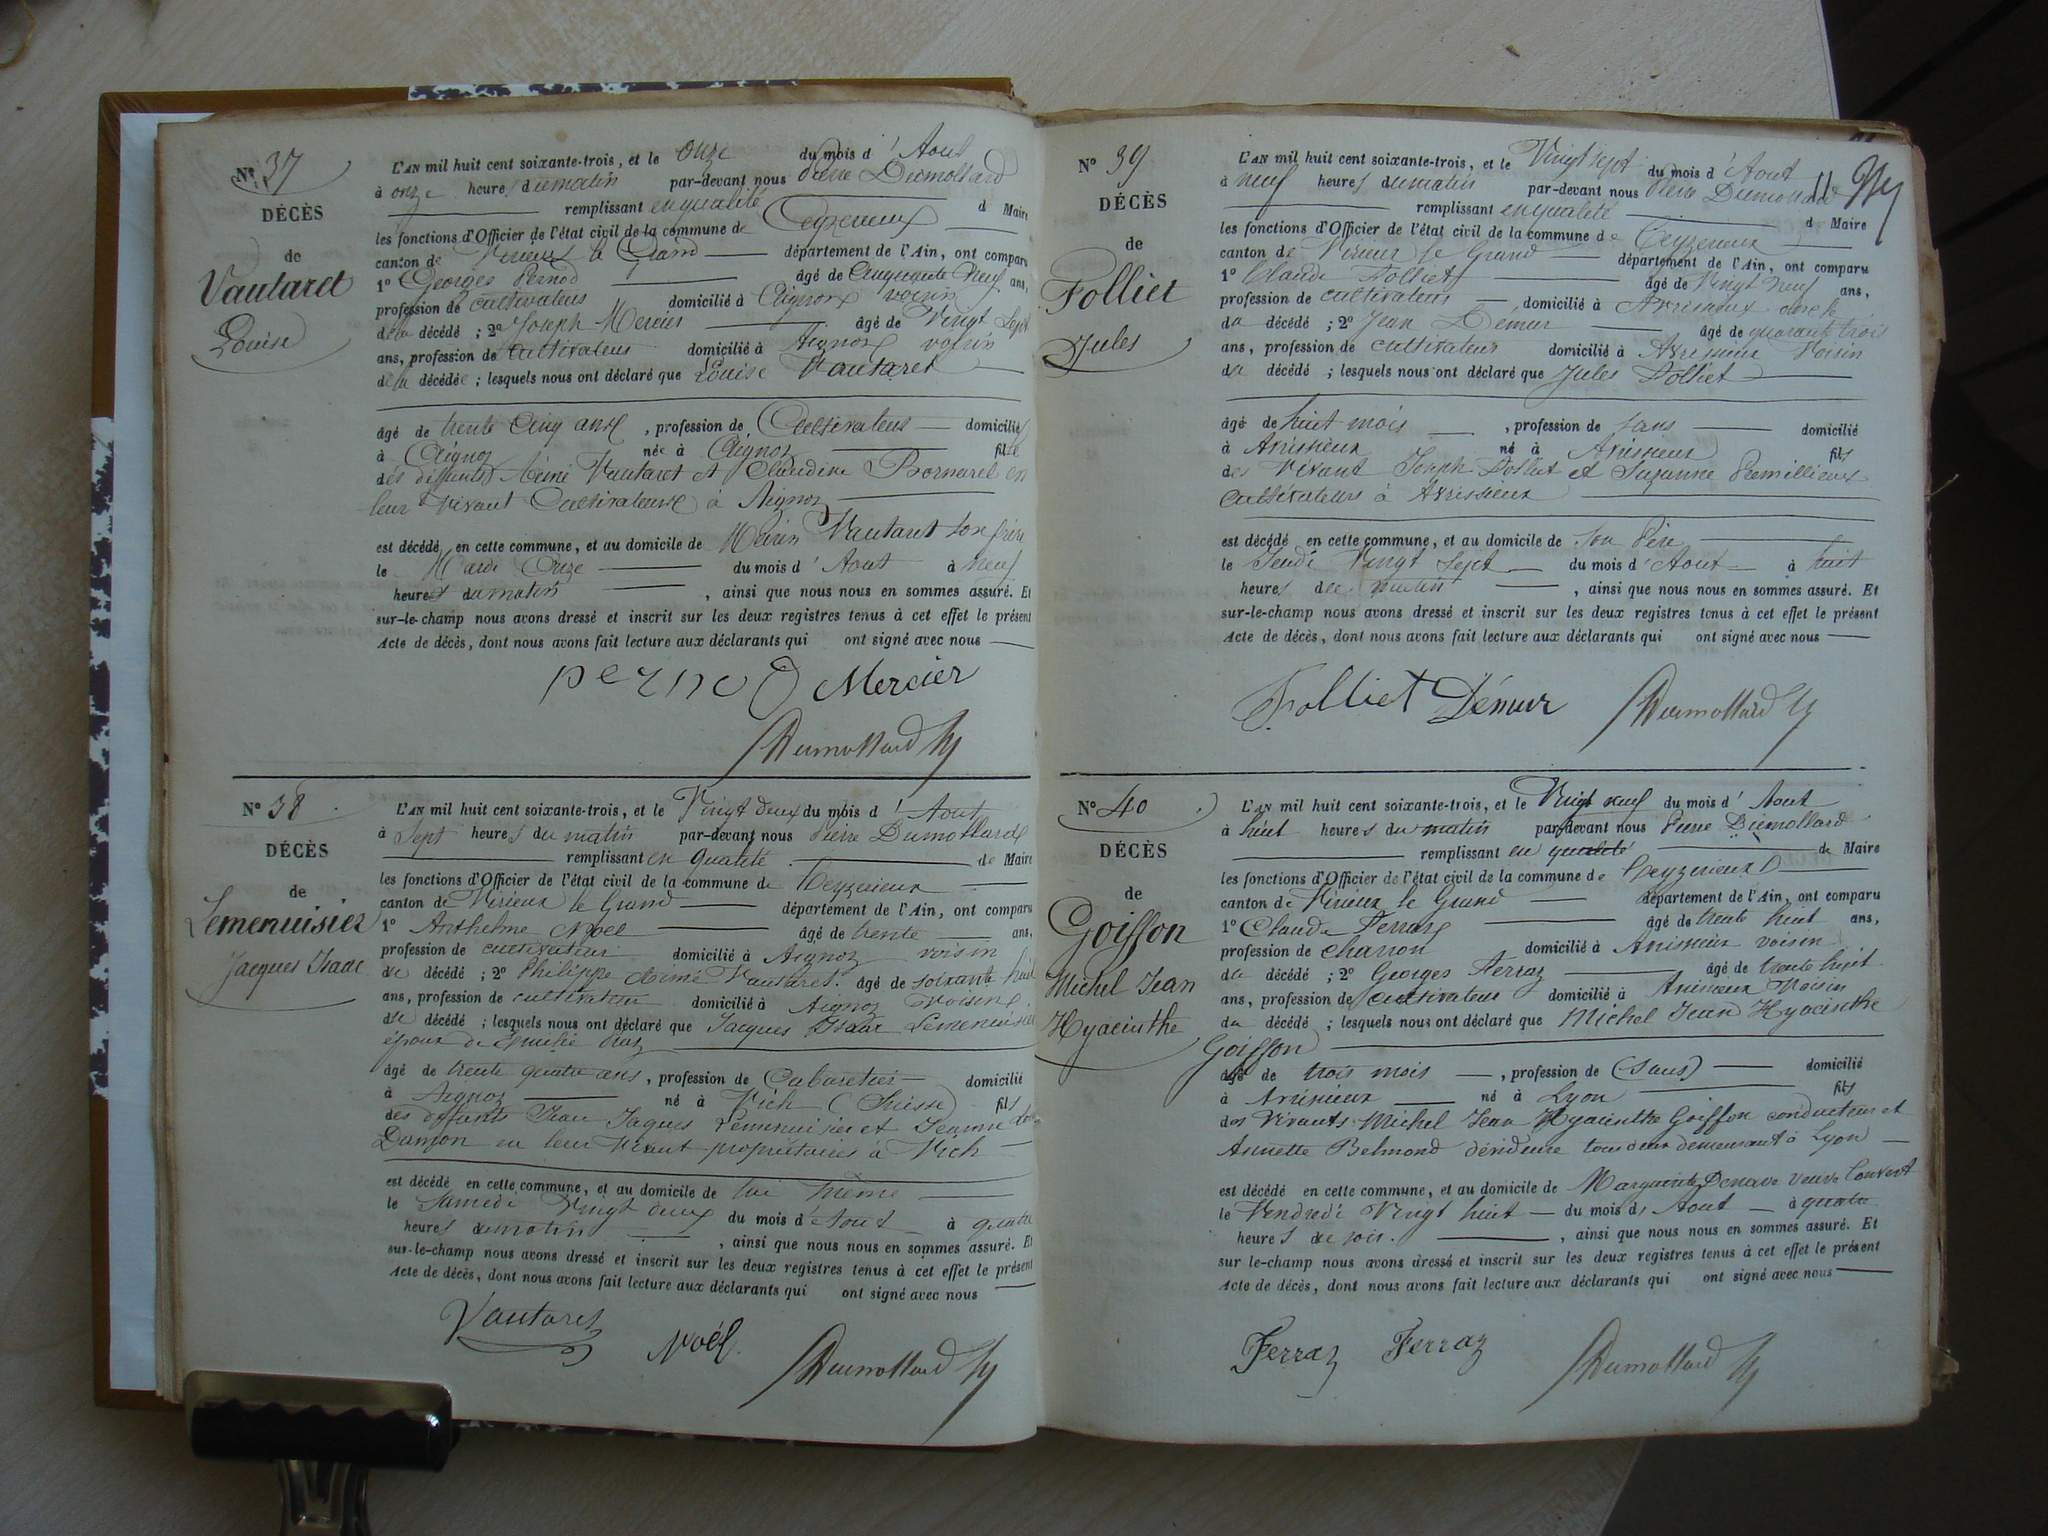 N° 37
DÉCÈS
de
Vautaret
Louise
L'AN mil huit cent soixante-trois, et le onze du mois d'Aout
à onze heures du matin par-devant nous Pierre Dumollard
remplissant en qualité d Maire
les fonctions d'Officier de l'état civil de la commune de Ceyzerieux
canton de Virieux le Grand département de l'Ain, ont comparu
1° Georges Pernod âgé de Cinquante Neuf ans,
profession de cultivateur domicilié à Aignoz voisin
de la décédé ; 2° Joseph Mercier âgé de Vingt Sept
ans, profession de cultivateur domicilié à Aignoz voisin
de la décédée ; lesquels nous ont déclaré que Louise Vautaret
âgé de trente Cinq ans, profession de Cultivateur domicilié
à Aignoz née à Aignoz fille
des deffunts Aimé Vautaret et Claudine Bornarel en
leur vivant Cultivateurs à Aignoz
est décédé en cette commune, et au domicile de Vautaret son frère
le Mardi Onze du mois d'Aout à neuf
heures du matin, ainsi que nous nous en sommes assuré. Et
sur-le-champ nous avons dressé et inscrit sur les deux registres tenus à cet effet le présent
Acte de décès, dont nous avons fait lecture aux déclarants qui ont signé avec nous
pernod Mercier
Dumollard
N° 38
DÉCÈS
de
Lemenuisier
Jacques Isaac
L'AN mil huit cent soixante-trois, et le Vingt deux du mois d'Aout
à Sept heures du matin par-devant nous Pierre Dumollard
remplissant en qualité de Maire
les fonctions d'Officier de l'état civil de la commune de Ceyzerieux
canton de Virieux le Grand département de l'Ain, ont comparu
1° Anthelme Noel âgé de trente ans,
profession de cultivateur domicilié à Aignoz voisin
du décédé ; 2° Philippe Aimé Vautaret. âgé de soixante huit
ans, profession de cultivateur domicilié à Aignoz voisins
du décédé ; lesquels nous ont déclaré que Jacques Isaac Lemenuisier
époux de
âgé de trente quatre ans, profession de Cabaretier domicilié
à Aignoz né à Vich (Suisse) fils
des deffunts Jean Jaques Lemenuisier et Jeanne
Damon en leur vivant propriétaires à Vich
est décédé en cette commune, et au domicile de lui même
le Samedi Vingt deux du mois d'Aout à quatre
heures du matin, ainsi que nous nous en sommes assuré. Et
sur-le-champ nous avons dressé et inscrit sur les deux registres tenus à cet effet le présent
Acte de décès, dont nous avons fait lecture aux déclarants qui ont signé avec nous
Vautaret Noël.
Dumollard
N° 39
DÉCÈS
de
Folliet
Jules
L'AN mil huit cent soixante-trois, et le Vingt sept du mois d'Aout
à neuf heures du matin par-devant nous Pierre Dumollard
remplissant en qualité d Maire
les fonctions d'Officier de l'état civil de la commune de Ceyzerieux
canton de Virieux le Grand département de l'Ain, ont comparu
1° Claude Folliet âgé de Vingt neuf ans,
profession de cultivateur domicilié à Avrissieux oncle
du décédé ; 2° Jean Démur âgé de quarante trois
ans, profession de cultivateur domicilié à Avrissieux Voisin
du décédé ; lesquels nous ont déclaré que Jules Folliet
âgé de huit mois, profession de sans domicilié
à Avrissieux né à Avrissieux fils
des Vivant Joseph Folliet et Suzanne Premillieux
cultivateurs à Avrissieux
est décédé en cette commune, et au domicile de son Père
le Jeudi Vingt Sept du mois d'Aout à huit
heures du matin, ainsi que nous nous en sommes assuré. Et
sur-le-champ nous avons dressé et inscrit sur les deux registres tenus à cet effet le présent
Acte de décès, dont nous avons fait lecture aux déclarants qui ont signé avec nous
Folliet Démur Dumollard
N° 40
DÉCÈS
de
Goiffon
Michel Jean
Hyacinthe
L'AN mil huit cent soixante-trois, et le Vingt neuf du mois d'Aout
à huit heures du matin par-devant nous Pierre Dumollard
remplissant en qualité de Maire
les fonctions d'Officier de l'état civil de la commune de Ceyzerieux
canton de Virieux le Grand département de l'Ain, ont comparu
1° Claude Ferraz âgé de trente huit ans,
profession de charron domicilié à Avrissieux voisin
du décédé ; 2° Georges Ferraz âgé de trente huit
ans, profession de cultivateur domicilié à Avrissieux Voisin
du décédé ; lesquels nous ont déclaré que Michel Jean Hyacinthe
Goiffon
âgé de trois mois, profession de (sans) domicilié
à Avrissieux né à Lyon fils
des Vivants Michel Jean Hyacinthe Goiffon conducteur et
Annette Belmond dévideuse tous deux demeurant à Lyon
est décédé en cette commune, et au domicile de Marguerite veuve Convert
le Vendredi Vingt huit du mois d'Aout à quatre
heures de soir., ainsi que nous nous en sommes assuré. Et
sur le-champ nous avons dressé et inscrit sur les deux registres tenus à cet effet le présent
Acte de décès, dont nous avons fait lecture aux déclarants qui ont signé avec nous
Ferraz Ferraz Dumollard